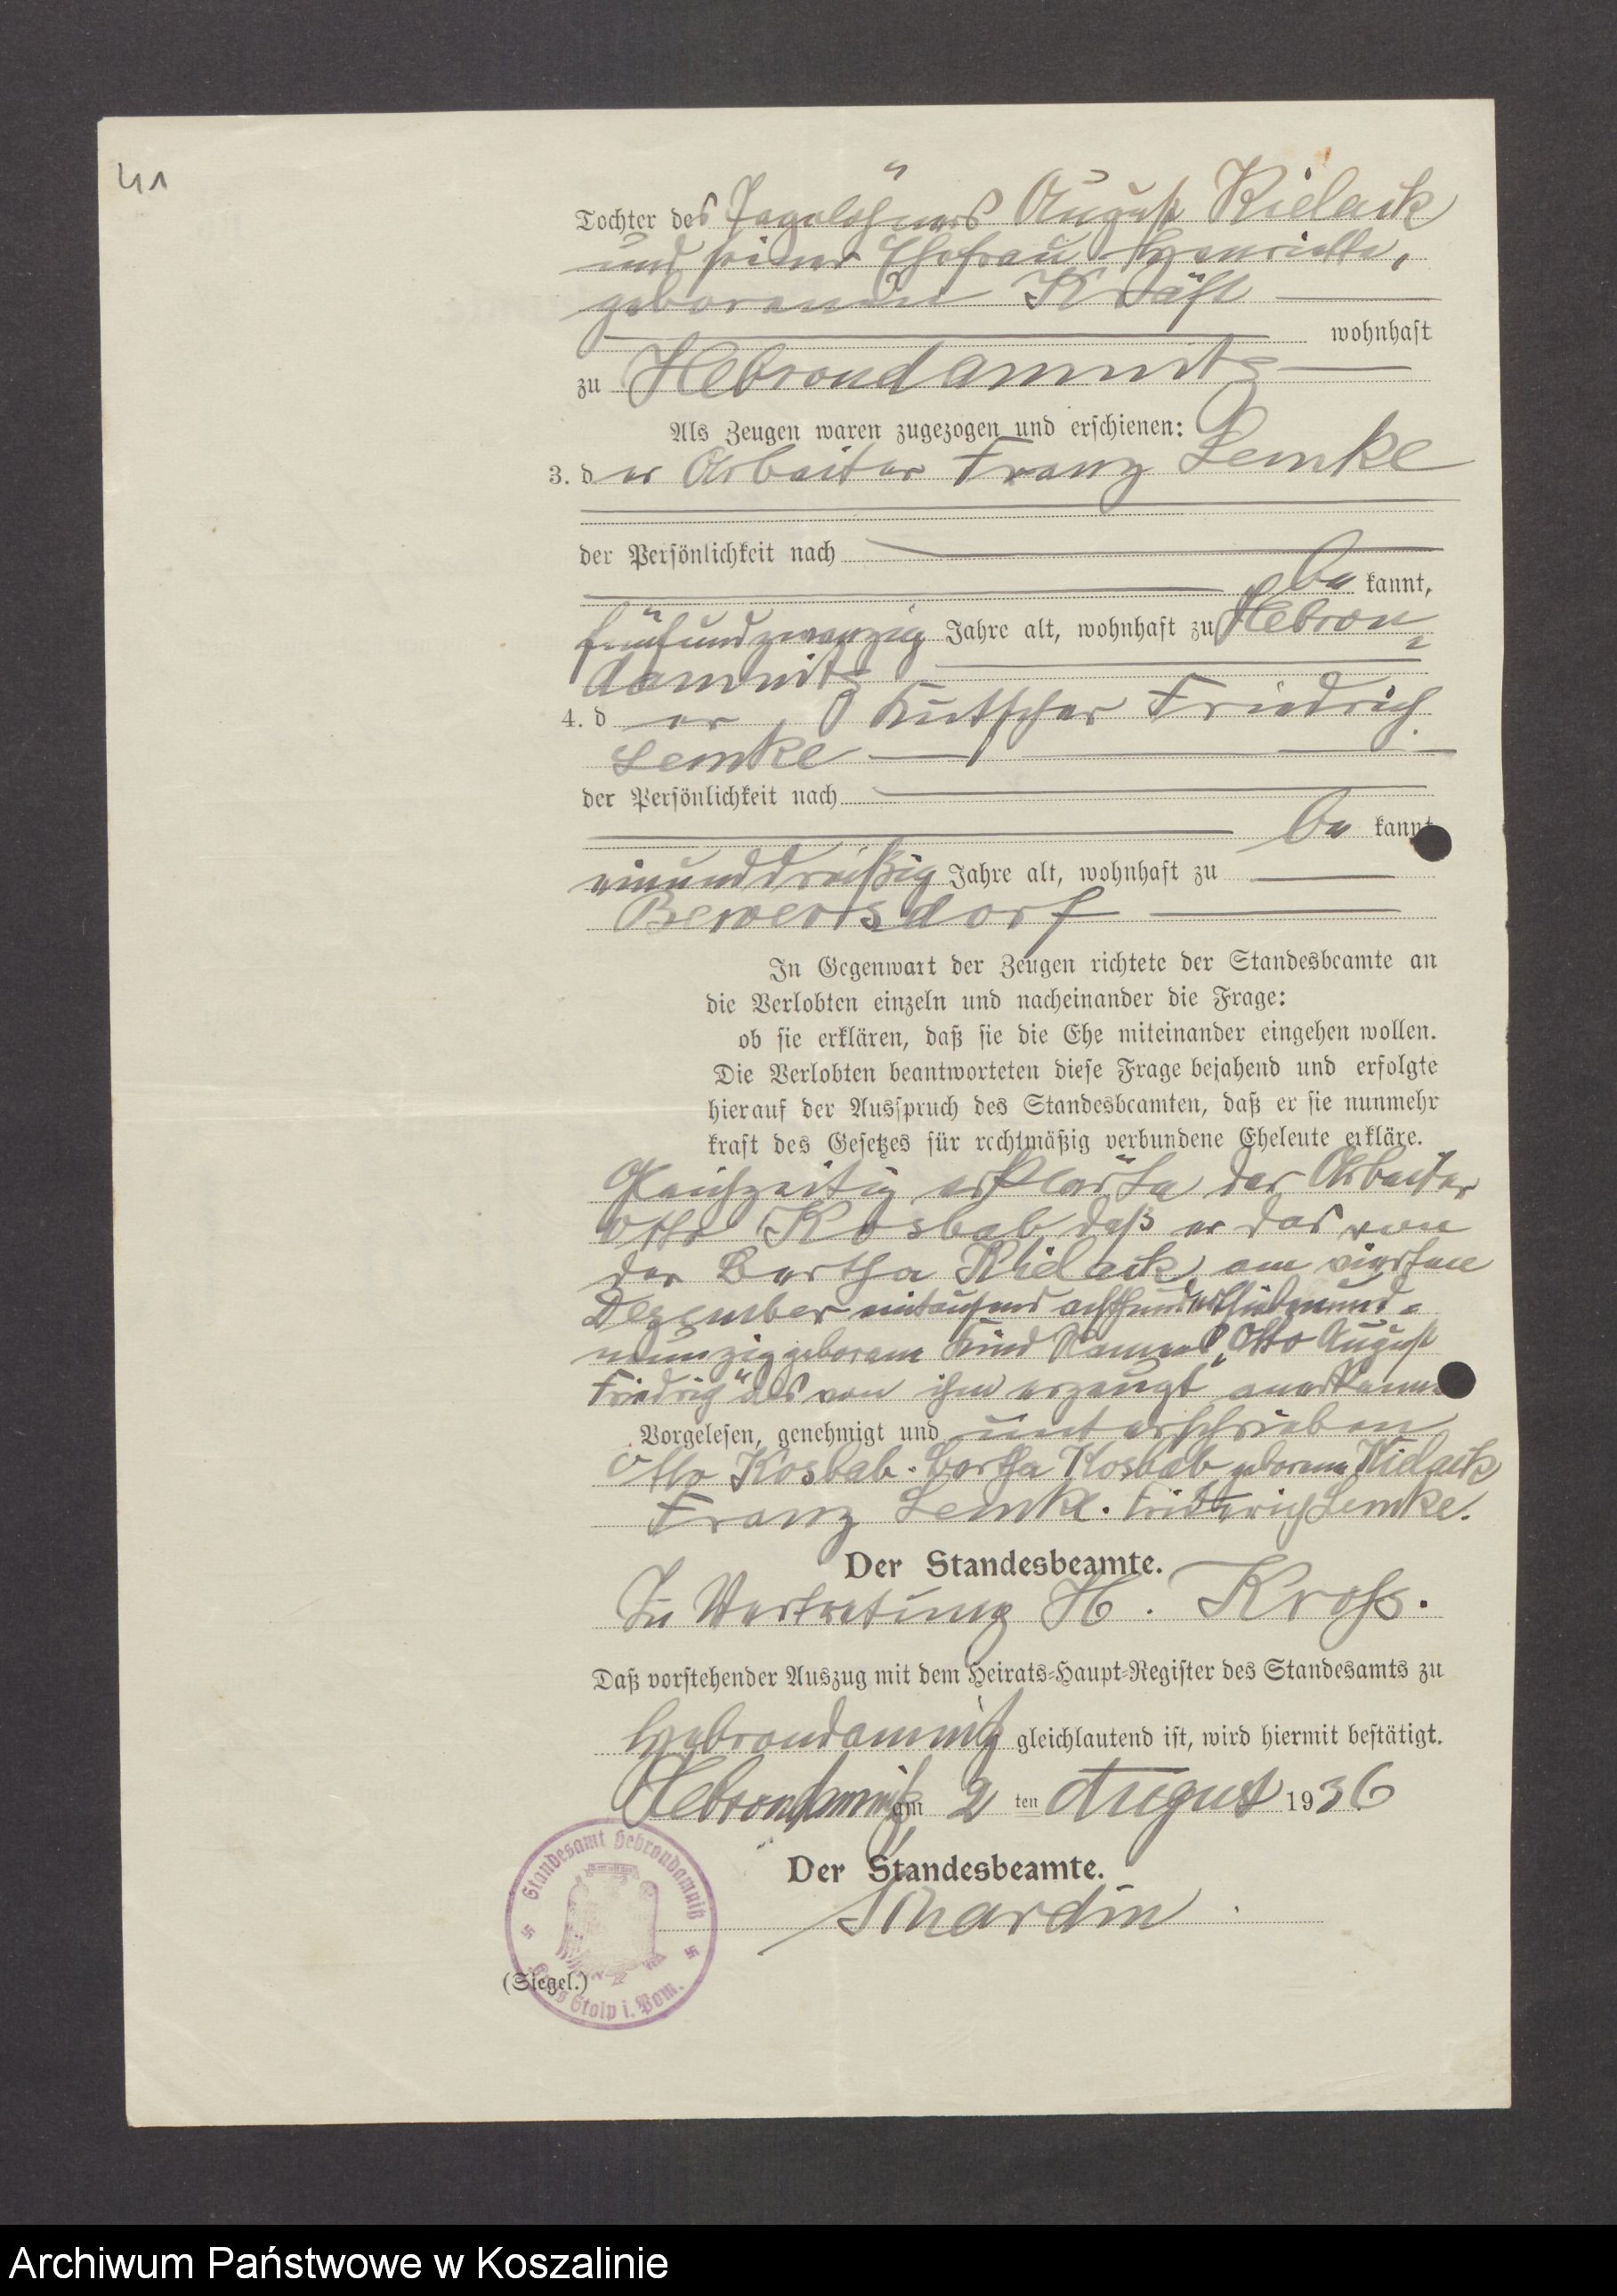 41
Tochter des Tagelöhners August Kielack
und seiner Ehefrau Henriette,
geborenen
wohnhaft
zu Hebrondamnitz
Als Zeugen waren zugezogen und erschienen:
3. der Arbeiter Franz Lemke
der Persönlichkeit nach
be kannt,
fünfundzwanzig Jahre alt, wohnhaft zu Hebron-
damnitz
4. d er Kutscher Friedrich
Lemke
der Persönlichkeit nach
be kannt
einunddreißig Jahre alt, wohnhaft zu
Bewersdorf
In Gegenwart der Zeugen richtete der Standesbeamte an
die Verlobten einzeln und nacheinander die Frage:
ob sie erklären, daß sie die Ehe miteinander eingehen wollen.
Die Verlobten beantworteten diese Frage bejahend und erfolgte
hierauf der Ausspruch des Standesbeamten, daß er sie nunmehr
kraft des Gesetzes für rechtmäßig verbundene Eheleute erkläre.
Gleichzeitig erklärte der Arbeiter
Otto Kosbab daß er das von
der Bertha Kielack am vierten
Dezember eintausend achthundertsiebenund-
neunzig geborene Kind Namens „Otto August
Friedrich" als von ihm erzeugt anerkenne
Vorgelesen, genehmigt und unterschrieben
Otto Kosbab. Bertha Kosbab geborene Kielack
Franz Lemke. Friedrich Lemke.
Der Standesbeamte.
In Vertretung H. Kroß.
Daß vorstehender Auszug mit dem Heirats-Haupt-Register des Standesamts zu
Hebrondamnitz gleichlautend ist, wird hiermit bestätigt.
Hebrondamnitz am 2 ten August 1936
Der Standesbeamte.
Standesamt Hebrondamnitz
Stolp i. Pom.
(Siegel.)
Archiwum Państwowe w Koszalinie